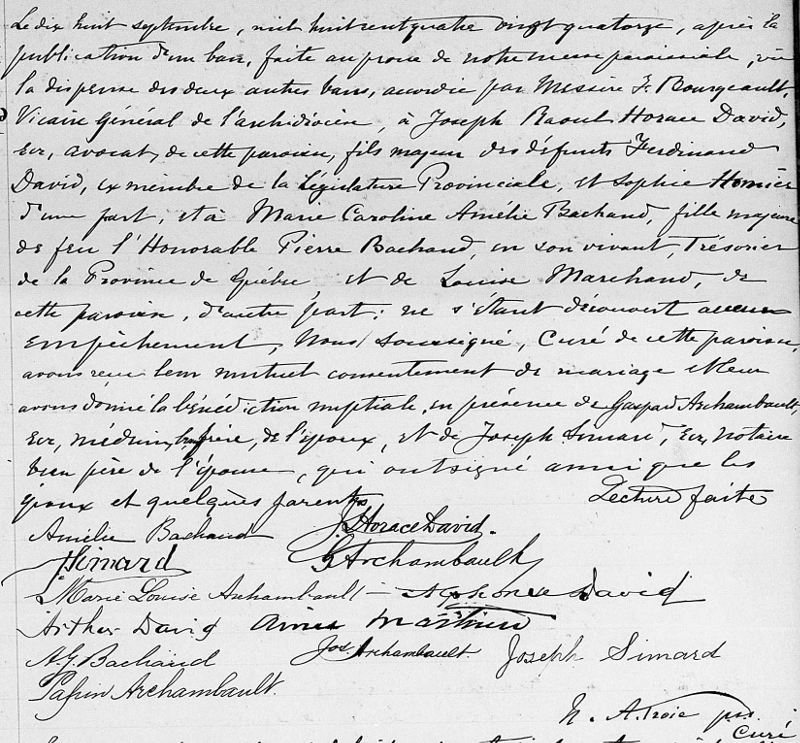 Le dix huit septembre, mil huit cent quatre vingt quatorze, après la
publication d'un ban, faite au prone de notre messe paroissiale, vu
la dispense des deux autres bans, accordée par Messire F. Bourgeault,
Vicaire Général de l'archidiocèse, à Joseph Raoul Horace David,
Ecr, avocat, de cette paroisse, fils majeur des défunts Ferdinand
David, ex membre de la Législature Provinciale, et Sophie Homier
d'une part, et à Marie Caroline Amélie Bachand, fille majeure
de feu l'Honorable Pierre Bachand, en son vivant, Trésorier
de la Province de Québec, et de Louise Marchand, de
cette paroisse, d'autre part; ne s'étant découvert aucun
empêchement, Nous soussigné, Curé de cette paroisse,
avons reçu leur mutuel consentement de mariage et leur
avons donné la bénédiction nuptiale, en présence de Gaspard Archambault,
Ecr, médecin, frère, de l'époux, et de Joseph Simard, Ecr, notaire
beau père de l'épouse, qui ont signé ainsi que les
époux et quelques parents. Lecture faite
Amélie Bachand J. Horace David.
J Simard G Archambault
Marie Louise Archambault Alphonse David
Arthur David Aimée Mathieu
A.G. Bachand Jos Archambault. Joseph Simard
Papin Archambault.
N. A. Troie ptr.
Curé